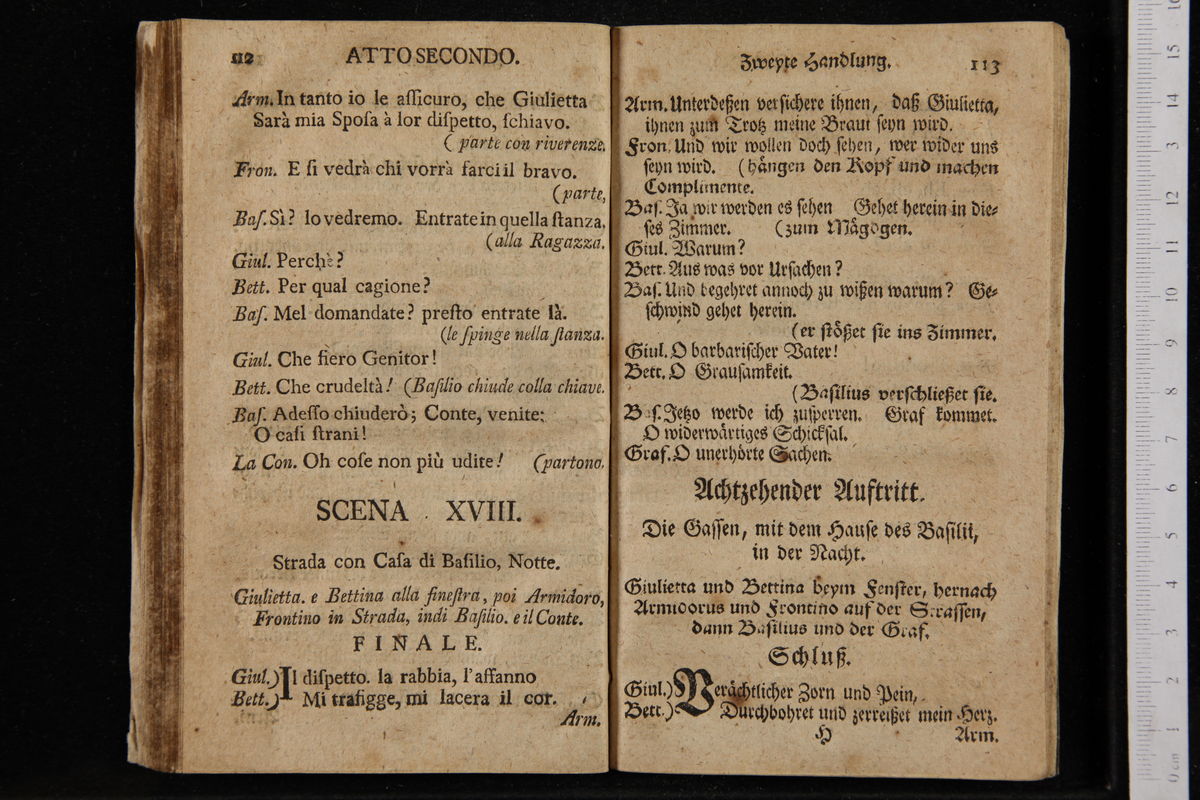 112 ATTO SECONDO.
Arm. In tanto io le aſſicuro, che Giulietta
Sarà mia Spoſa à lor diſpetto, ſchiavo.
( parte con riverenze,
Fron. E ſi vedrà chi vorrà farci il bravo.
(parte,
Baſ. Sì? lo vedremo. Entrate in quella ſtanza,
(alla Ragazza.
Giul. Perchè?
Bett. Per qual cagione?
Baſ. Mel domandate? preſto entrate là.
(le ſpinge nella ſtanza.
Giul. Che fiero Genitor!
Bett. Che crudeltà! (Baſilio chiude colla chiave.
Baſ. Adeſſo chiuderò; Conte, venite;
O caſi ſtrani!
La Con. Oh coſe non più udite! (partono.
SCENA XVIII.
Strada con Caſa di Baſilio, Notte.
Giulietta. e Bettina alla fineſtra, poi Armidoro,
Frontino in Strada, indi Baſilio. e il Conte.
FINALE.
Giul.) Il diſpetto. la rabbia, l'affanno
Bett.) Mi trafigge, mi lacera il cor.
Arm.
Zweyte Handlung. 113
Arm. Unterdeßen verſichere ihnen, daß Giulietta,
ihnen zum Trotz meine Braut ſeyn wird.
Fron. Und wir wollen doch ſehen, wer wider uns
ſeyn wird. (hängen den Kopf und machen
Complimente.
Baſ. Ja wir werden es ſehen Gehet herein in die⸗
ſes Zimmer. (zum Mägdgen.
Giul. Warum?
Bett. Aus was vor Urſachen?
Baſ. Und begehret annoch zu wißen warum? Ge⸗
ſchwind gehet herein.
(er ſtößet ſie ins Zimmer.
Giul. O barbariſcher Vater!
Bett. O Grauſamkeit.
(Baſilius verſchließet ſie.
Baſ. Jetzo werde ich zuſperren. Graf kommet.
O widerwärtiges Schickſal.
Graf. O unerhörte Sachen.
Achtzehender Auftritt.
Die Gaſſen, mit dem Hauſe des Baſilii,
in der Nacht.
Giulietta und Bettina beym Fenſter, hernach
Armidorus und Frontino auf der Straſſen,
dann Baſilius und der Graf.
Schluß.
Giul.) Verächtlicher Zorn und Pein,
Bett.) Durchbohret und zerreißet mein Herz.
H Arm.
0 cm 1 2 3 4 5 6 7 8 9 10 11 12 13 14 15 16